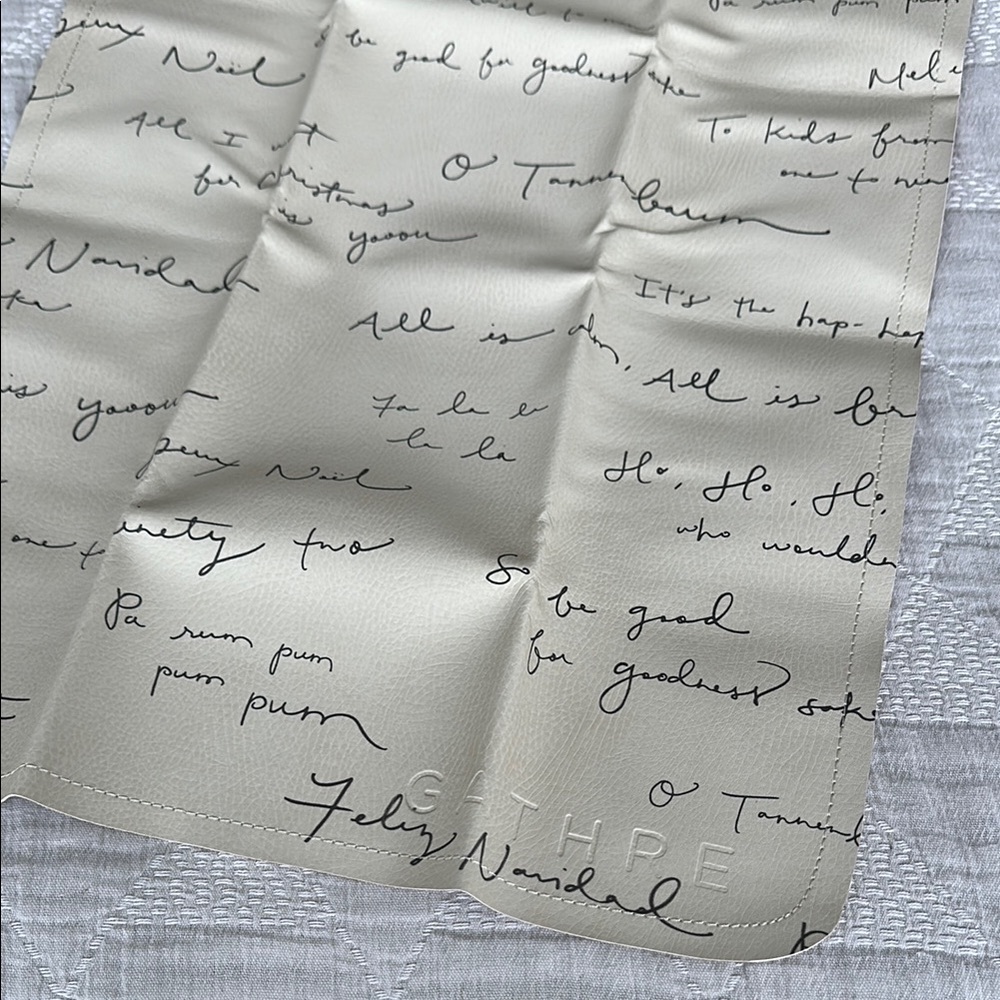 Noël
be good for goodness sake
All I
for christmas
is yooou
O Tannenbaum
To kids from
one to nine
Navidad
It's the hap-hap
All is calm,
All is br
is yooou
Fa la la
la la
Noël
Ho, Ho, Ho,
who wouldn
one to
ninety two
So
be good
for goodness sake
Pa rum pum
pum pum
pum
Feliz Navidad
GATHRE
O Tannenb